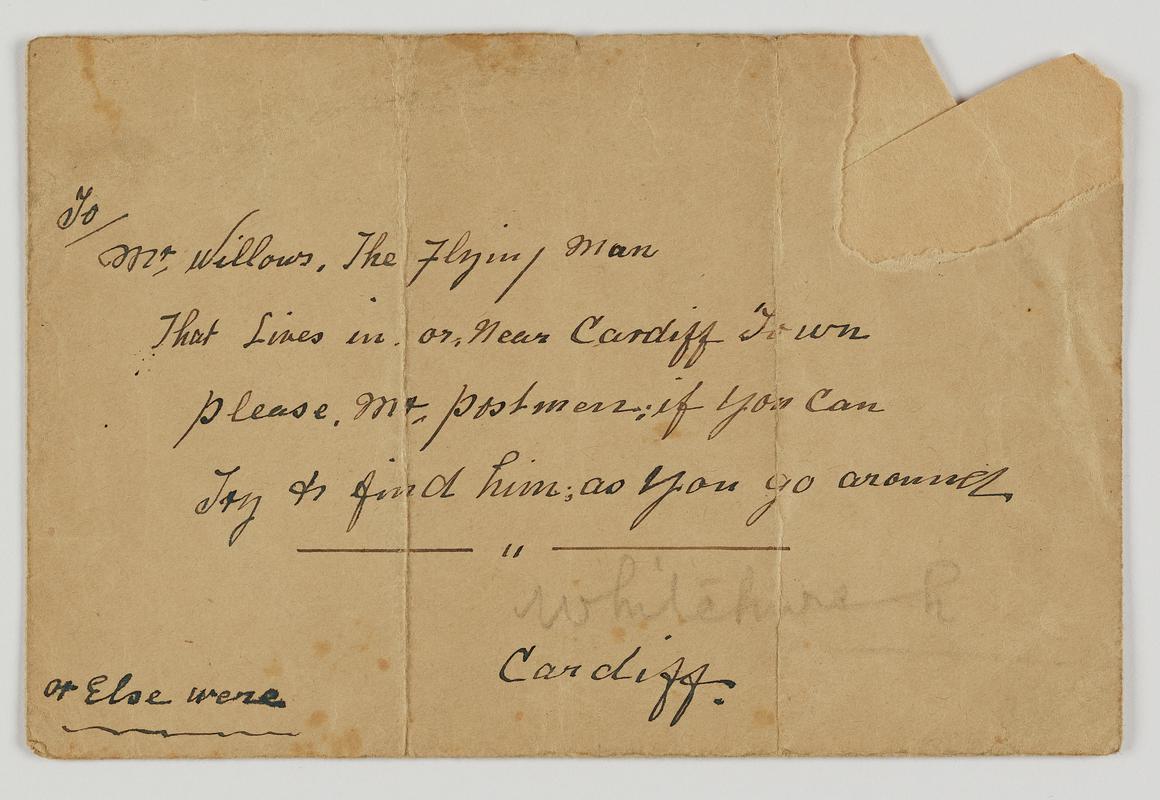 To/
Mr. Willows, The Flying Man
That Lives in. or, Near Cardiff Town
please, Mr. postmen; if you Can
Try to find him; as you go around.
"
Whitchurch
Cardiff.
or Else were